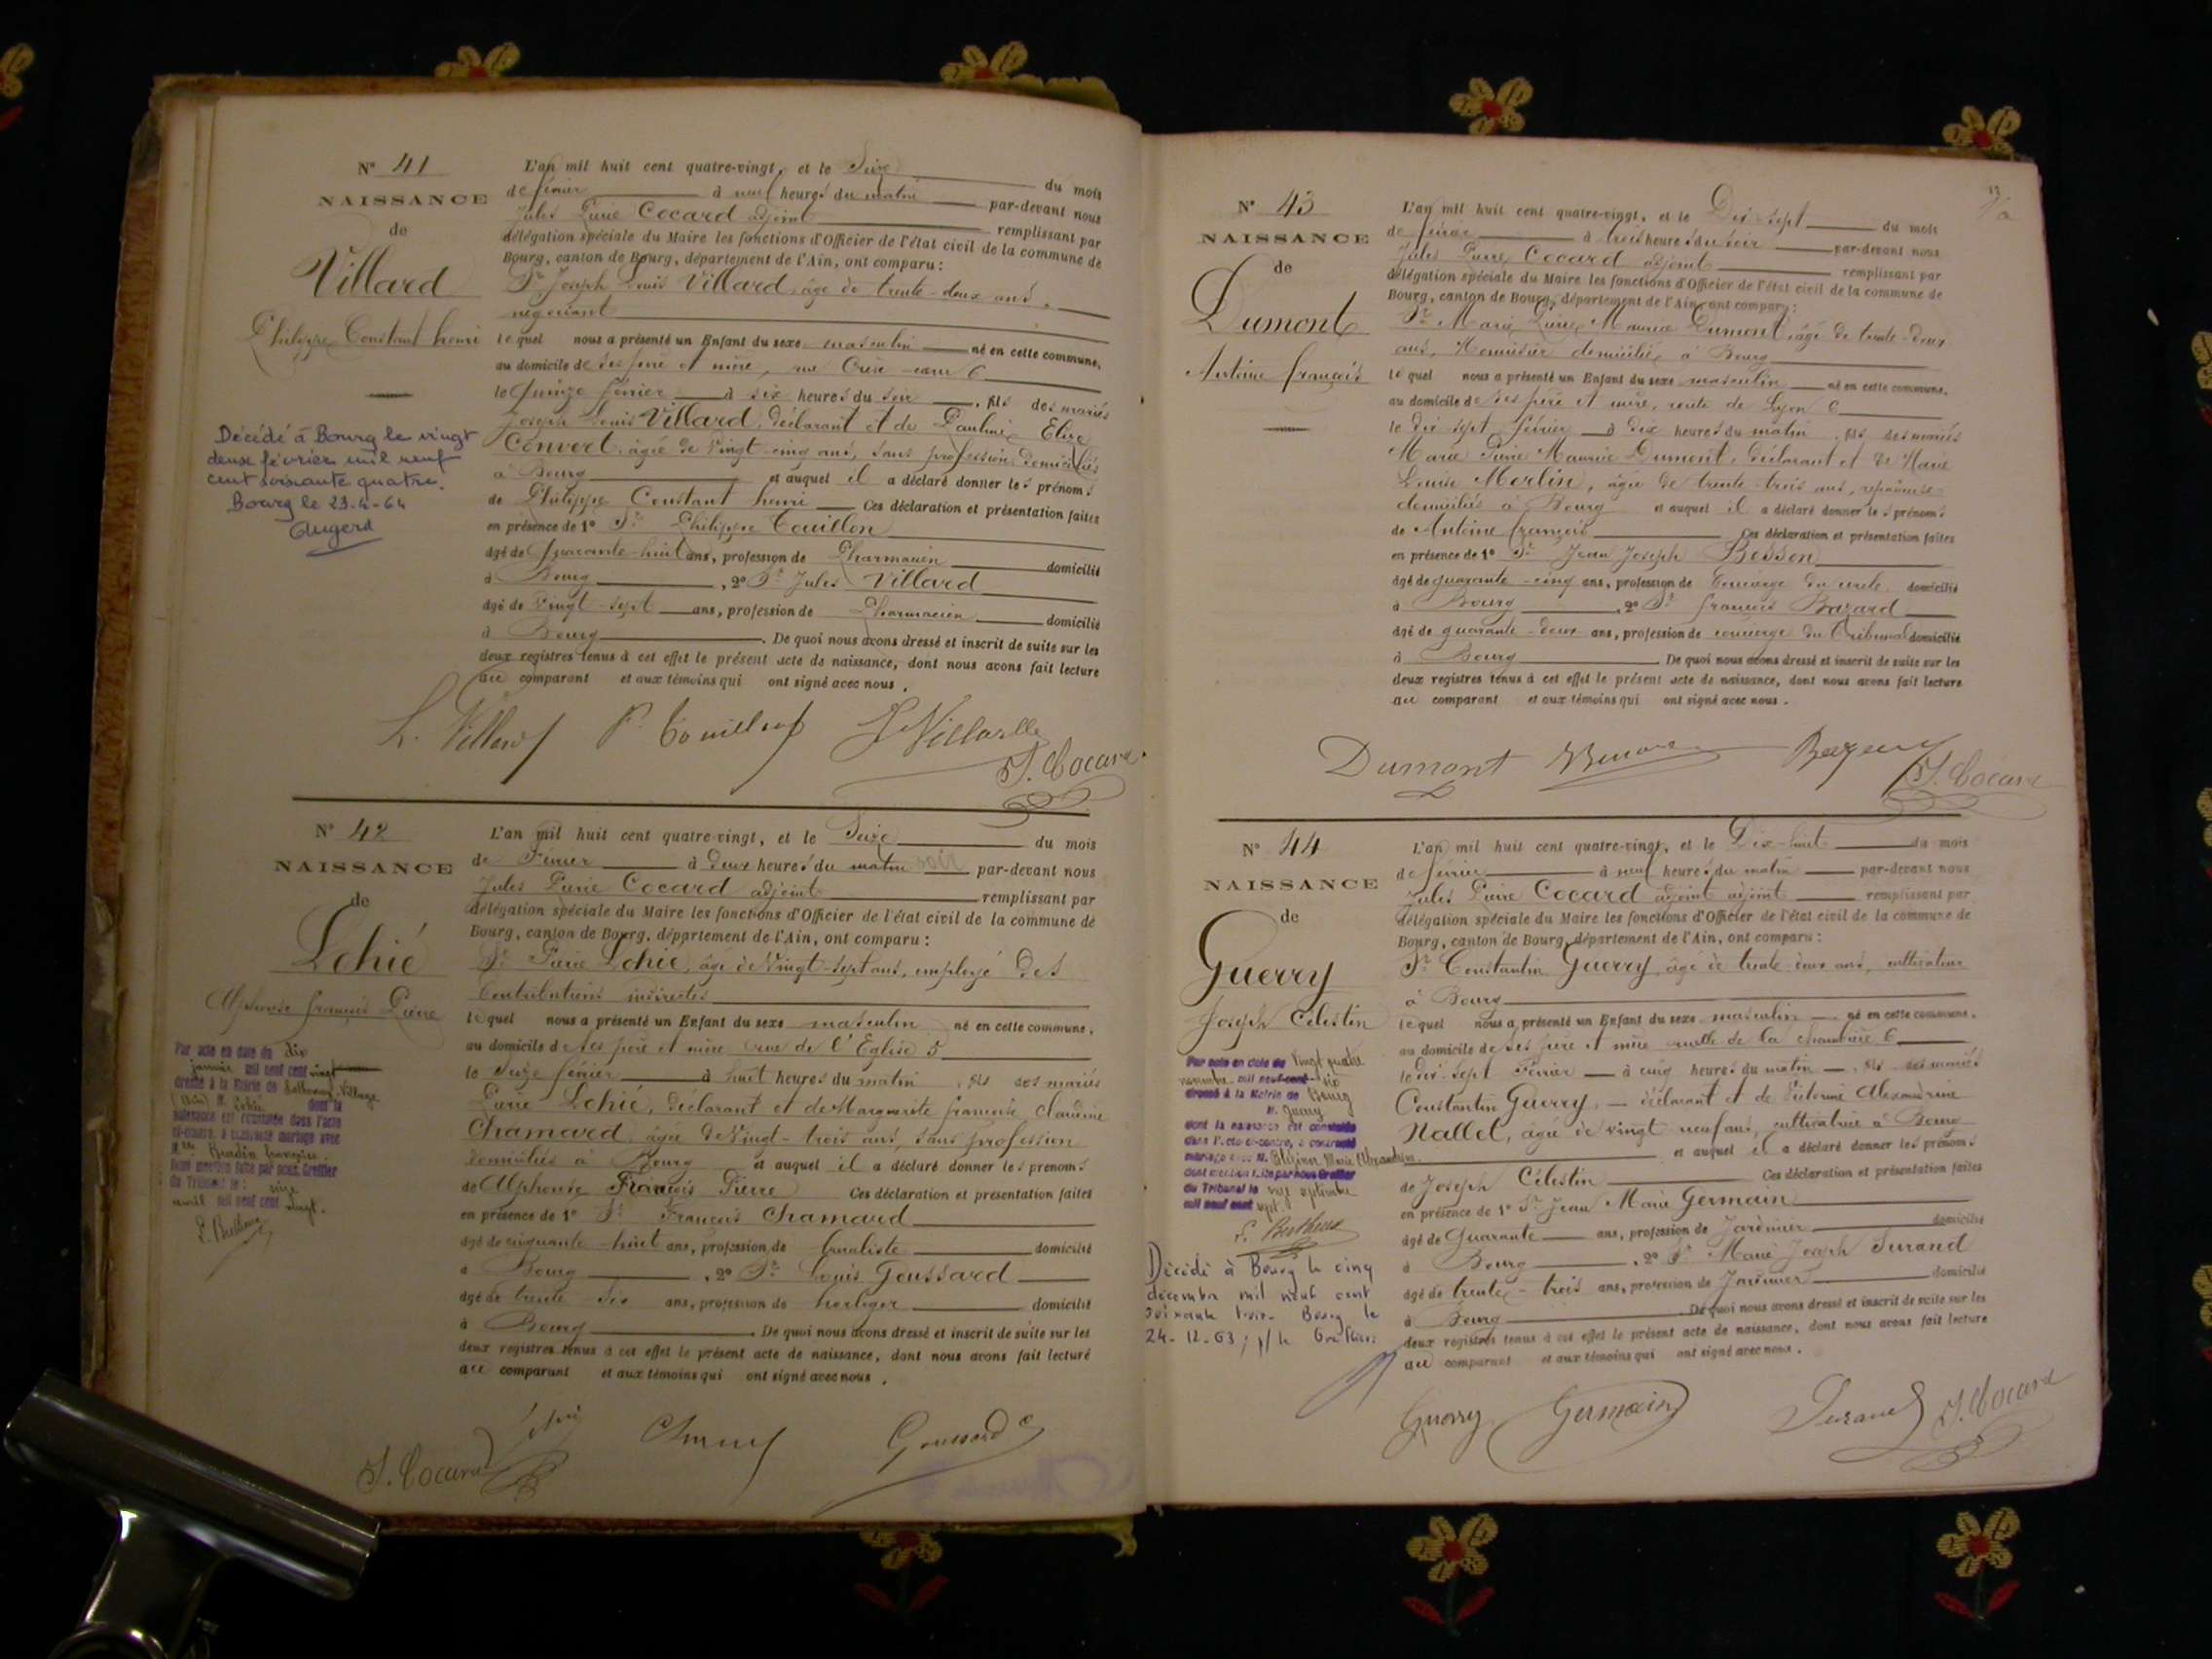 N° 41
NAISSANCE
de
Villard
Philippe Constant henri
Décédé à Bourg le vingt
deux février mil neuf
cent soixante quatre.
Bourg le 23-4-64
Augerd
L'an mil huit cent quatre-vingt, et le Seize du mois
de février à neuf heures du matin par-devant nous
Jules Pierre Cocard adjoint remplissant par
délégation spéciale du Maire les fonctions d'Officier de l'état civil de la commune de
Bourg, canton de Bourg, département de l'Ain, ont comparu :
Sr Joseph Louis Villard, âgé de trente-deux ans,
négociant
lequel nous a présenté un Enfant du sexe masculin né en cette commune,
au domicile de ses père et mère, rue Crève-cœur 6
le quinze février à six heures du soir, fils des mariés
Joseph Louis Villard, déclarant et de Pauline Elise
Convert, âgée de vingt-cinq ans, sans profession, domiciliés
à Bourg et auquel il a déclaré donner les prénoms
de Philippe Constant henri Ces déclaration et présentation faites
en présence de 1° Sr Philippe Touillon
âgé de quarante-huit ans, profession de Pharmacien domicilié
à Bourg, 2° Sr Jules Villard
âgé de vingt-sept ans, profession de Pharmacien domicilié
à Bourg. De quoi nous avons dressé et inscrit de suite sur les
deux registres tenus à cet effet le présent acte de naissance, dont nous avons fait lecture
au comparant et aux témoins qui ont signé avec nous.
L. Villard P. Touillon J. Villard
J. Cocard
N° 42
NAISSANCE
de
Lehié
Alphonse françois Pierre
Par acte en date du dix
janvier mil neuf cent vingt
dressé à la Mairie de Village
(Ain) M. Lehié dont la
naissance est constatée dans l'acte
ci-contre, a contracté mariage avec
Mlle françoise.
Dont mention faite par nous, Greffier
du Tribunal le
avril mil neuf cent vingt.
L'an mil huit cent quatre-vingt, et le Seize du mois
de Février à deux heures du matin soir par-devant nous
Jules Pierre Cocard adjoint remplissant par
délégation spéciale du Maire les fonctions d'Officier de l'état civil de la commune de
Bourg, canton de Bourg, département de l'Ain, ont comparu :
Sr Pierre Lehié, âgé de vingt-sept ans, employé des
Contributions indirectes
lequel nous a présenté un Enfant du sexe masculin né en cette commune,
au domicile de ses père et mère rue de l'Eglise 5
le Seize février à huit heures du matin, fils des mariés
Pierre Lehié, déclarant et de Marguerite françoise Claudine
Chamard, âgée de vingt-trois ans, sans profession
domiciliés à Bourg et auquel il a déclaré donner les prénoms
de Alphonse François Pierre Ces déclaration et présentation faites
en présence de 1° Sr François Chamard
âgé de cinquante-huit ans, profession de domicilié
à Bourg, 2° Sr Louis Goussard
âgé de trente-six ans, profession de horloger domicilié
à Bourg. De quoi nous avons dressé et inscrit de suite sur les
deux registres tenus à cet effet le présent acte de naissance, dont nous avons fait lecture
au comparant et aux témoins qui ont signé avec nous.
J. Cocard Lehié Goussard
N° 43
NAISSANCE
de
Dumont
Antoine françois
L'an mil huit cent quatre-vingt, et le Dix-sept du mois
de février à trois heures du soir par-devant nous
Jules Pierre Cocard adjoint remplissant par
délégation spéciale du Maire les fonctions d'Officier de l'état civil de la commune de
Bourg, canton de Bourg, département de l'Ain, ont comparu :
Sr Marie Pierre Maurice Dumont, âgé de trente-deux
ans, Menuisier domicilié à Bourg
lequel nous a présenté un Enfant du sexe masculin né en cette commune,
au domicile de ses père et mère, route de Lyon 6
le dix sept février à dix heures du matin, fils des mariés
Marie Pierre Maurice Dumont, déclarant et de Marie
Louise Merlin, âgée de trente-trois ans,
domiciliés à Bourg et auquel il a déclaré donner les prénoms
de Antoine françois Ces déclaration et présentation faites
en présence de 1° Sr Jean Joseph Besson
âgé de quarante-cinq ans, profession de Concierge du cercle domicilié
à Bourg, 2° Sr françois Bazard
âgé de quarante-deux ans, profession de concierge du Tribunal domicilié
à Bourg De quoi nous avons dressé et inscrit de suite sur les
deux registres tenus à cet effet le présent acte de naissance, dont nous avons fait lecture
au comparant et aux témoins qui ont signé avec nous.
Dumont J. Cocard
N° 44
NAISSANCE
de
Guerry
Joseph Célestin
Par acte en date du vingt quatre
novembre mil neuf cent six
dressé à la Mairie de Bourg
M. Guerry
dont la naissance est constatée
dans l'acte ci-contre, a contracté
mariage avec M. Marie
dont mention faite par nous Greffier
du Tribunal le septembre
mil neuf cent sept.
Décédé à Bourg le cinq
décembre mil neuf cent
soixante trois. Bourg le
24-12-63, p/ le Greffier:
L'an mil huit cent quatre-vingt, et le Dix-huit du mois
de février à neuf heures du matin par-devant nous
Jules Pierre Cocard adjoint adjoint remplissant par
délégation spéciale du Maire les fonctions d'Officier de l'état civil de la commune de
Bourg, canton de Bourg, département de l'Ain, ont comparu :
Sr Constantin Guerry, âgé de trente deux ans, cultivateur
à Bourg
lequel nous a présenté un Enfant du sexe masculin né en cette commune,
au domicile de ses père et mère ruelle de la 6
le dix-sept Février à cinq heures du matin, fils des mariés
Constantin Guerry, déclarant et de Victorine Alexandrine
Nallet, âgée de vingt neuf ans, cultivatrice à Bourg
et auquel il a déclaré donner les prénoms
de Joseph Célestin Ces déclaration et présentation faites
en présence de 1° Sr Jean Marie Germain
âgé de Quarante ans, profession de Jardinier domicilié
à Bourg, 2° Sr Marie Joseph Durand
âgé de trente-trois ans, profession de Jardinier domicilié
à Bourg. De quoi nous avons dressé et inscrit de suite sur les
deux registres tenus à cet effet le présent acte de naissance, dont nous avons fait lecture
au comparant et aux témoins qui ont signé avec nous.
Guerry Germain Durand J. Cocard